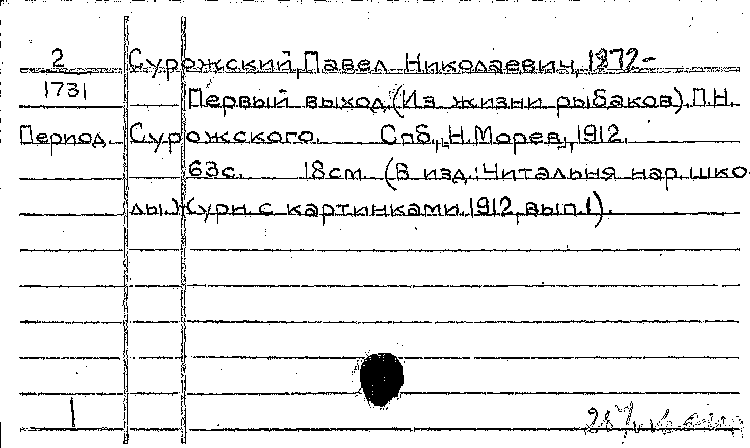 2 Сурожский, Павел Николаевич, 1872-
1731 Первый выход. (Из жизни рыбаков). П.Н.
Период. Сурожского. Спб., Н.Морев, 1912.
63с. 18см. (В изд.: Читальня нар. шко-
лы. Журн. с картинками. 1912, вып. 1).
1